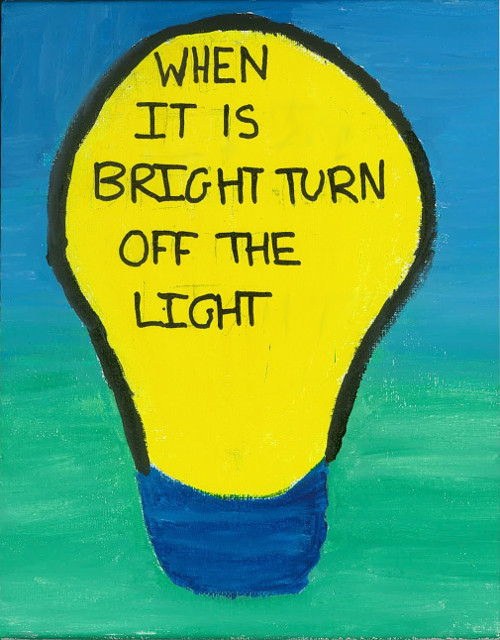 WHEN
IT IS
BRIGHT TURN
OFF THE
LIGHT